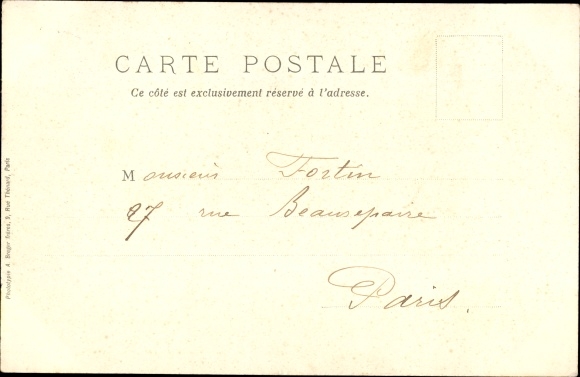 CARTE POSTALE
Ce côté est exclusivement réservé à l'adresse.
Monsieur Fortin
27 rue Beaurepaire
Paris.
Phototypie A. Bergeret frères, 9, Rue Thénard, Paris